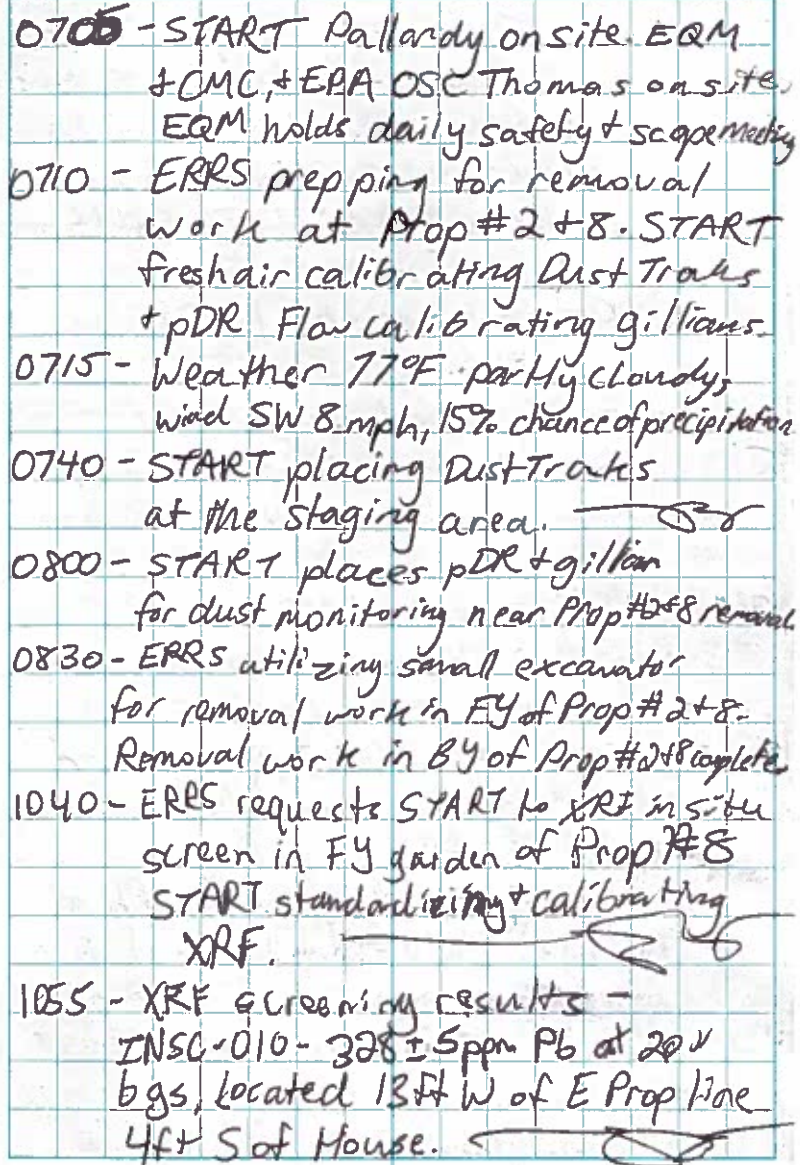 0705 - START Pallardy onsite. EQM
+ CMC, + EPA OSC Thomas on site.
EQM holds daily safety + scope meeting
0710 - ERRS prepping for removal
work at Prop #2 + 8. START
freshair calibrating Dust Traks
+ pDR Flow calibrating gillians.
0715 - Weather 77°F partly cloudy,
wind SW 8 mph, 15% chance of precipitation
0740 - START placing DustTraks
at the staging area.
0800 - START places pDR + gillian
for dust monitoring near Prop #2+8 removal
0830 - ERRS utilizing small excavator
for removal work in FY of Prop #2+8.
Removal work in BY of Prop #2+8 complete.
1040 - ERRS requests START to XRF in situ
screen in FY garden of Prop #8
START standardizing + calibrating
XRF.
1055 - XRF screening results -
INSC-010 - 328 ± 5ppm Pb at
bgs, located 13ft W of E Prop line
4ft S of House.